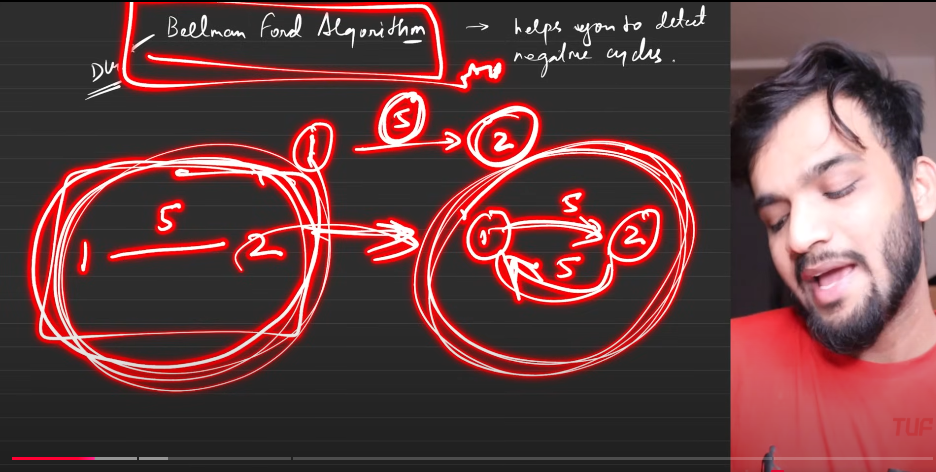 Bellman Ford Algorithm → helps you to detect
negative cycles.
1 5 2
1 5 2
1 5 2
5
TUF